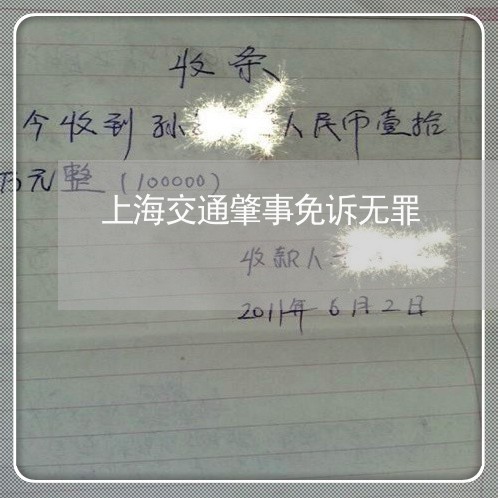 收条
今收到孙人民币壹拾
万元整（100000）
上海交通肇事免诉无罪
收款人
2011年6月2日